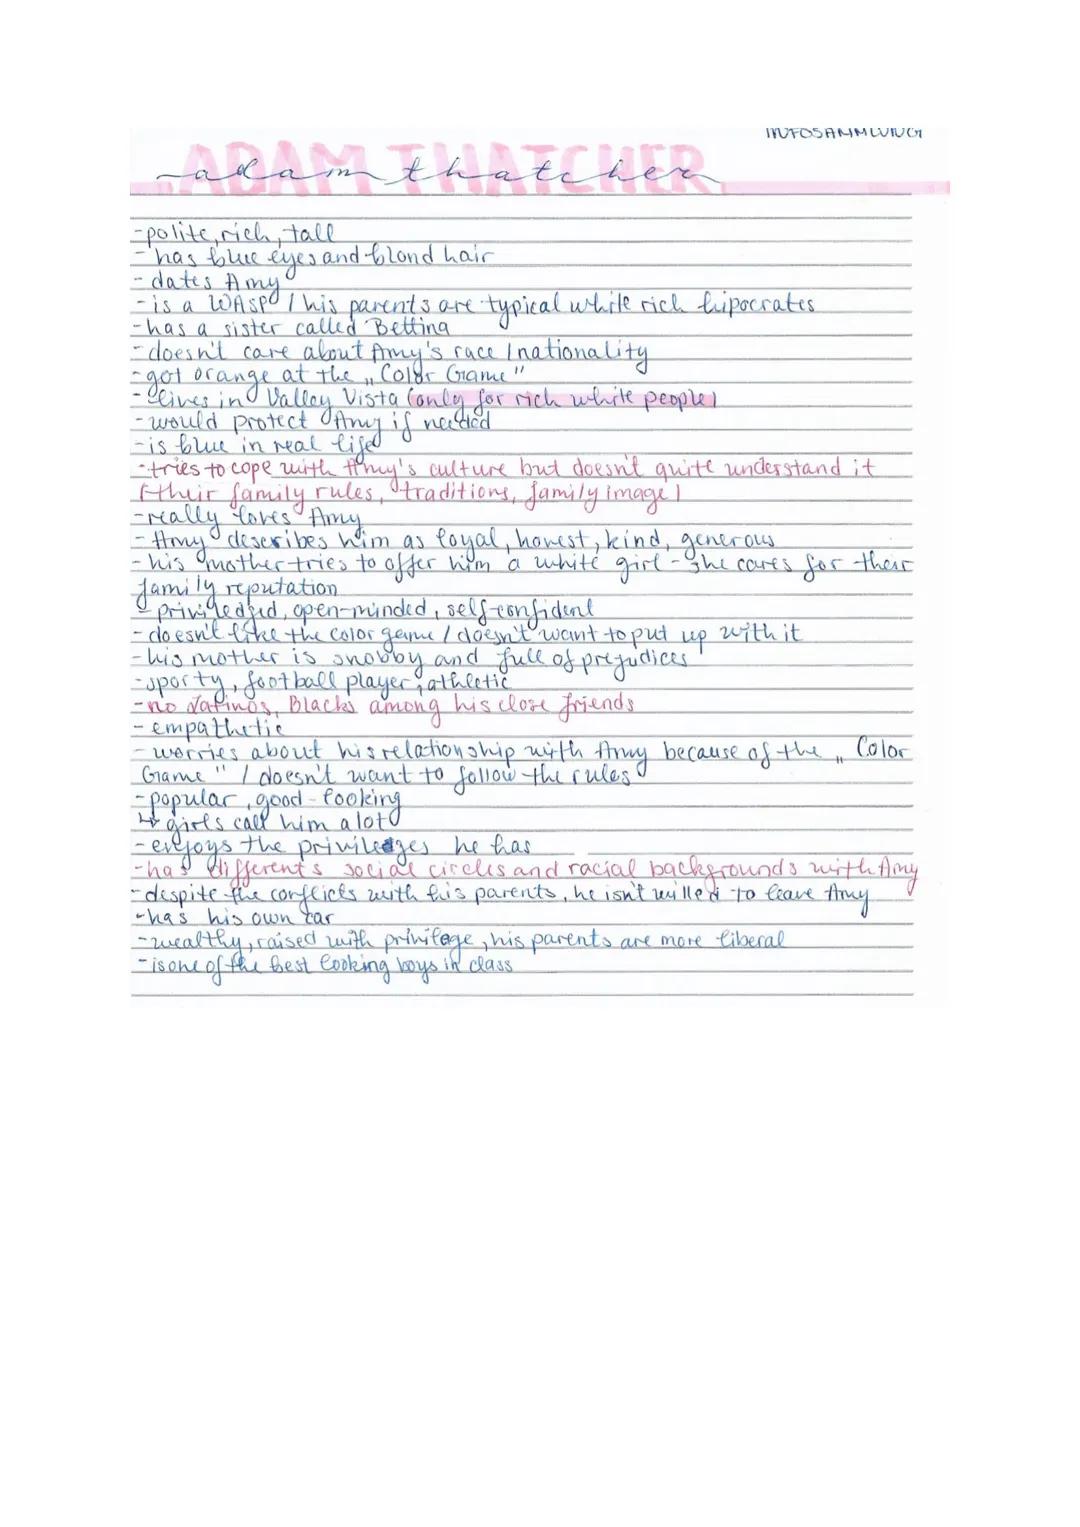 INFOSAMMLUNG
ADAM THATCHER
adam thatcher
-polite, rich, tall
- has blue eyes and blond hair
- dates Amy
- is a WASP / his parents are typical white rich hipocrates
-has a sister called Bettina
-doesn't care about Amy's race / nationality
-got orange at the „Color Game"
-lives in Valley Vista (only for rich white people)
-would protect Amy if needed
-is blue in real life
-tries to cope with Amy's culture but doesn't quite understand it
(their family rules, traditions, family image)
-really loves Amy
- Amy describes him as loyal, honest, kind, generous
- his mother tries to offer him a white girl - she cares for their
family reputation
- priviledged, open-minded, self-confident
- doesn't like the color game / doesn't want to put up with it
- his mother is snobby and full of prejudices
-sporty, football player, athletic
-no Latinos, Blacks among his close friends
- empathetic
- worries about his relationship with Amy because of the „Color
Game" / doesn't want to follow the rules
-popular, good-looking
↳ girls call him a lot
-enjoys the priviledges he has
-has differents social circles and racial backgrounds with Amy
-despite the conflicts with his parents, he isn't willed to leave Amy
-has his own car
-wealthy, raised with privilege, his parents are more liberal
-is one of the best looking boys in class